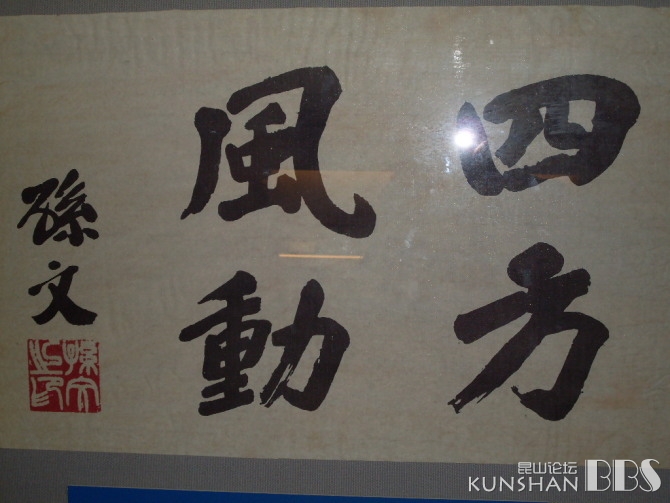 四方
風動
孫文
孫文之印
昆山论坛
KUNSHAN BBS